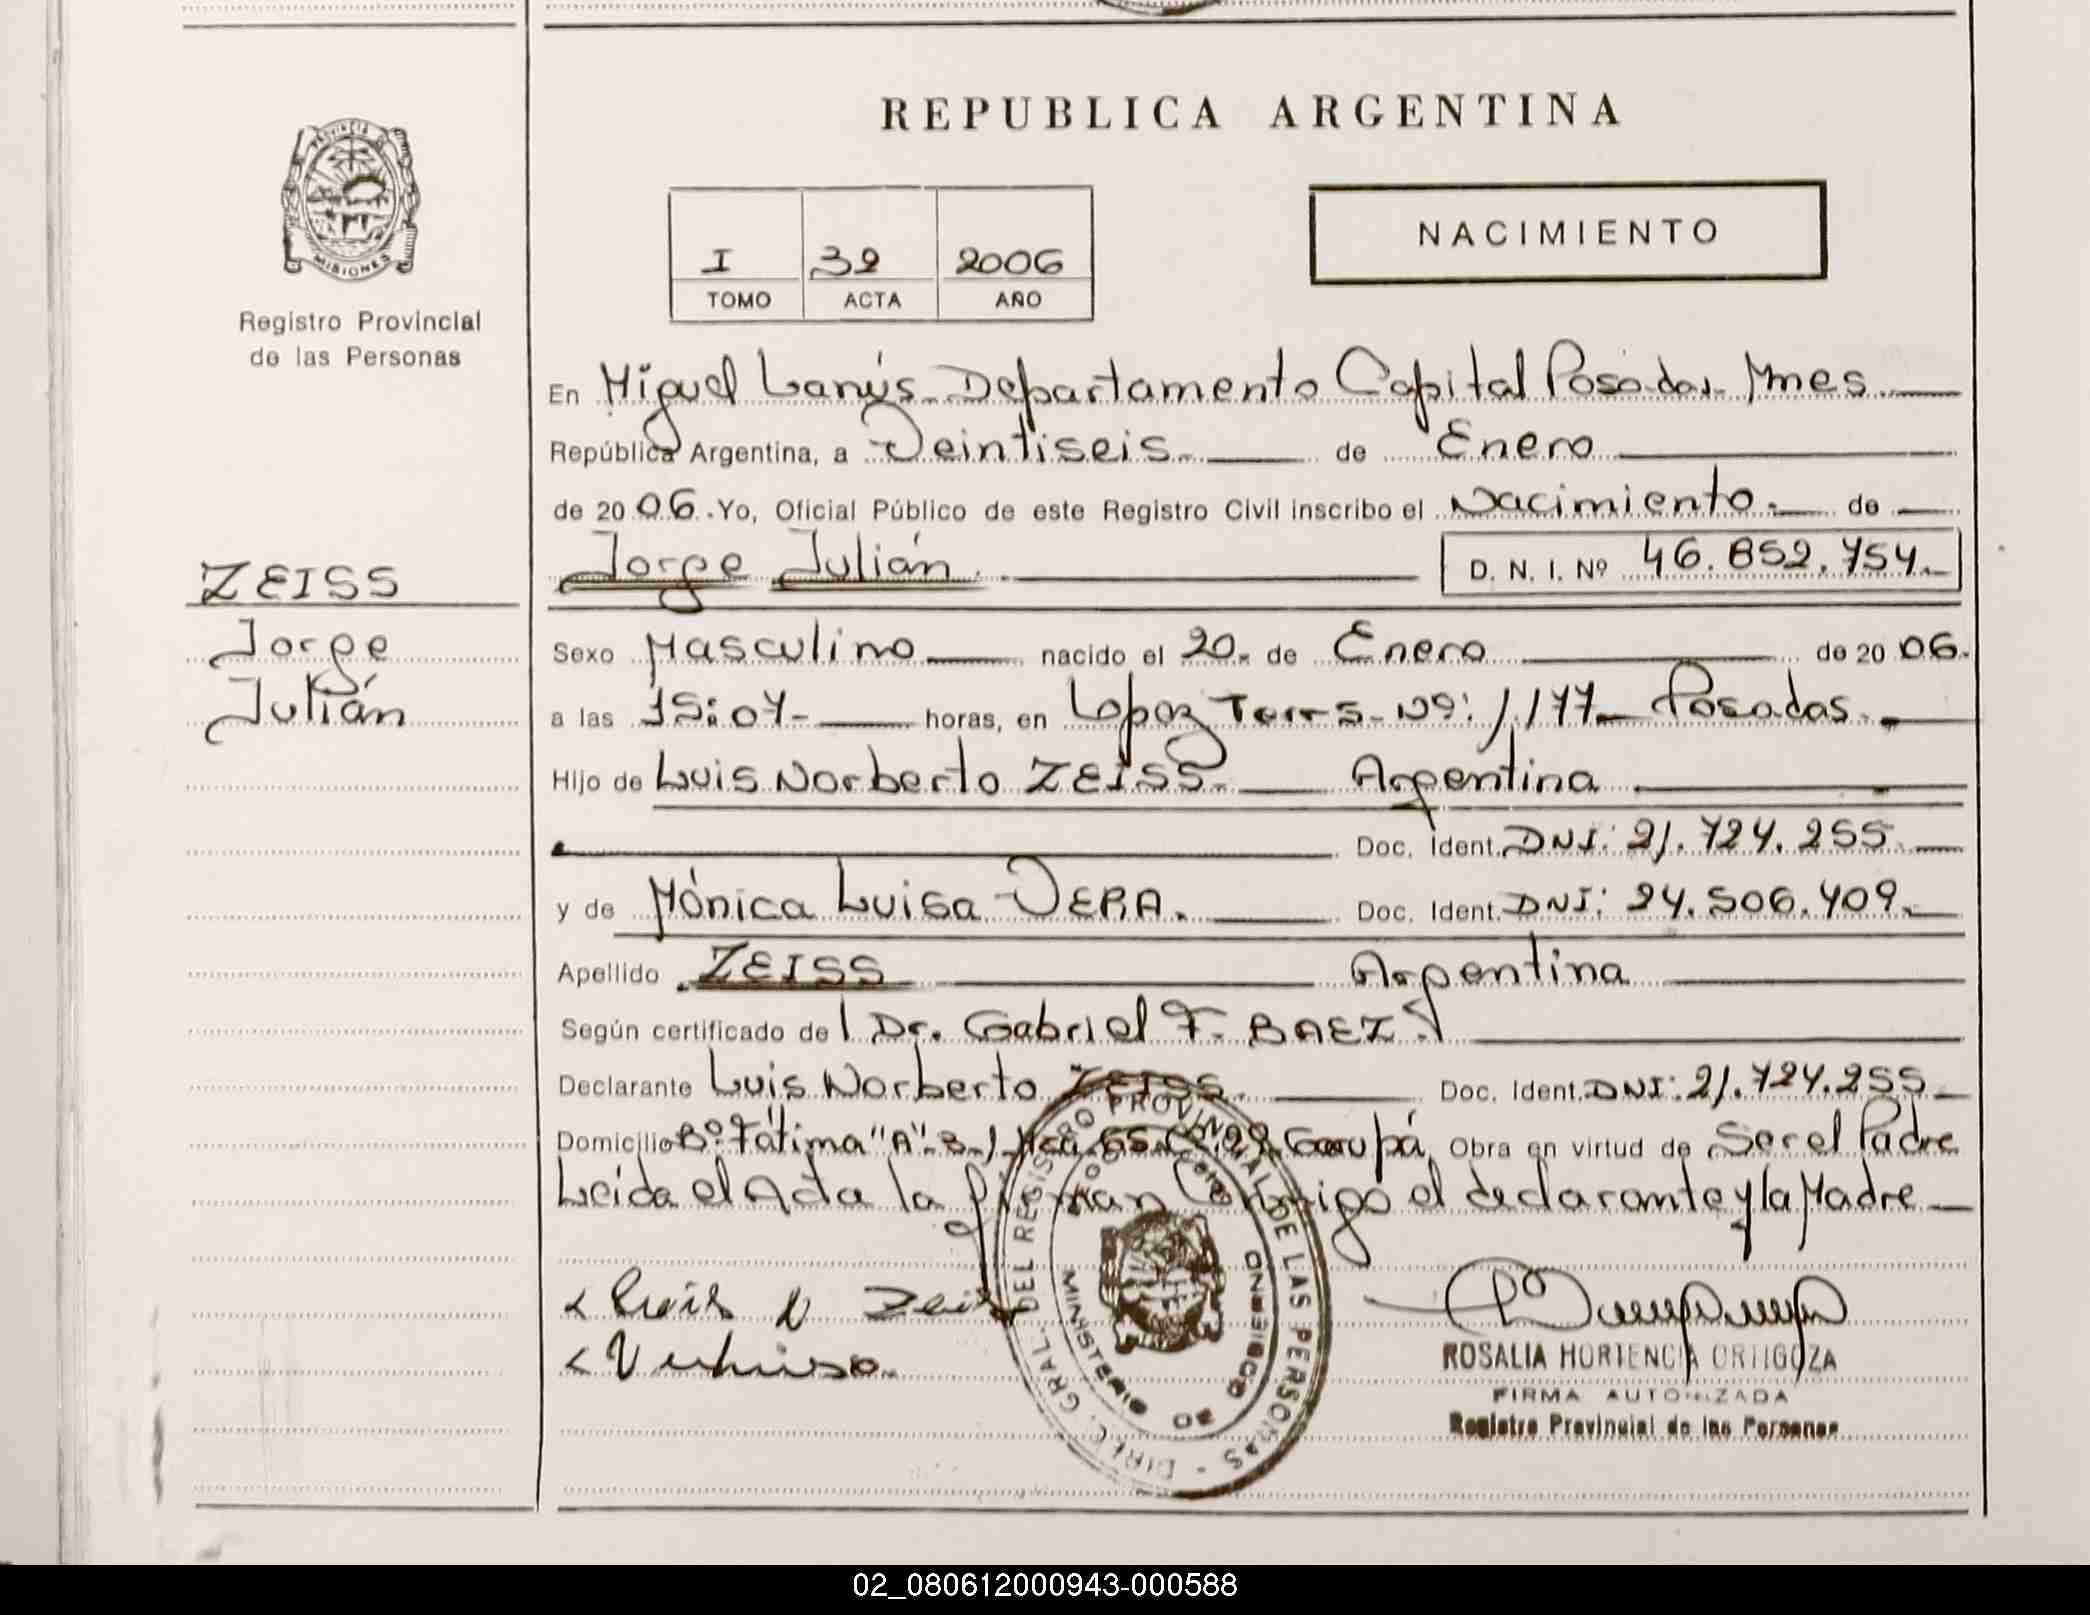 REPUBLICA ARGENTINA
PROVINCIA DE MISIONES
Registro Provincial
de las Personas
I 32 2006
TOMO ACTA AÑO
NACIMIENTO
En Miguel Lanús - Departamento Capital Posadas - Mnes
República Argentina, a Veintiseis de Enero
de 2006. Yo, Oficial Público de este Registro Civil inscribo el Nacimiento de
ZEISS
Jorge
Julián
Jorge Julián D. N. I. Nº 46.852.754.
Sexo Masculino nacido el 20 de Enero de 2006.
a las 15:07 horas, en Lopez Torres Nº: 1.177 Posadas.
Hijo de Luis Norberto ZEISS. Argentina
Doc. Ident. DNI: 21.724.255.
y de Mónica Luisa VERA. Doc. Ident. DNI: 24.506.409.
Apellido ZEISS Argentina
Según certificado de Dr. Gabriel F. BAEZ.
Declarante Luis Norberto ZEISS. Doc. Ident. DNI: 21.724.255.
Domicilio Bº. Fátima "A" Garupá Obra en virtud de Ser el Padre
Leída el Acta la firman Conmigo el declarante y la Madre
Luis N Zeiss
DIREC. GRAL. DEL REGISTRO PROVINCIAL DE LAS PERSONAS
MINISTERIO DE GOBIERNO
ROSALIA HORTENCIA ORTIGOZA
FIRMA AUTORIZADA
Registro Provincial de las Personas
02_080612000943-000588